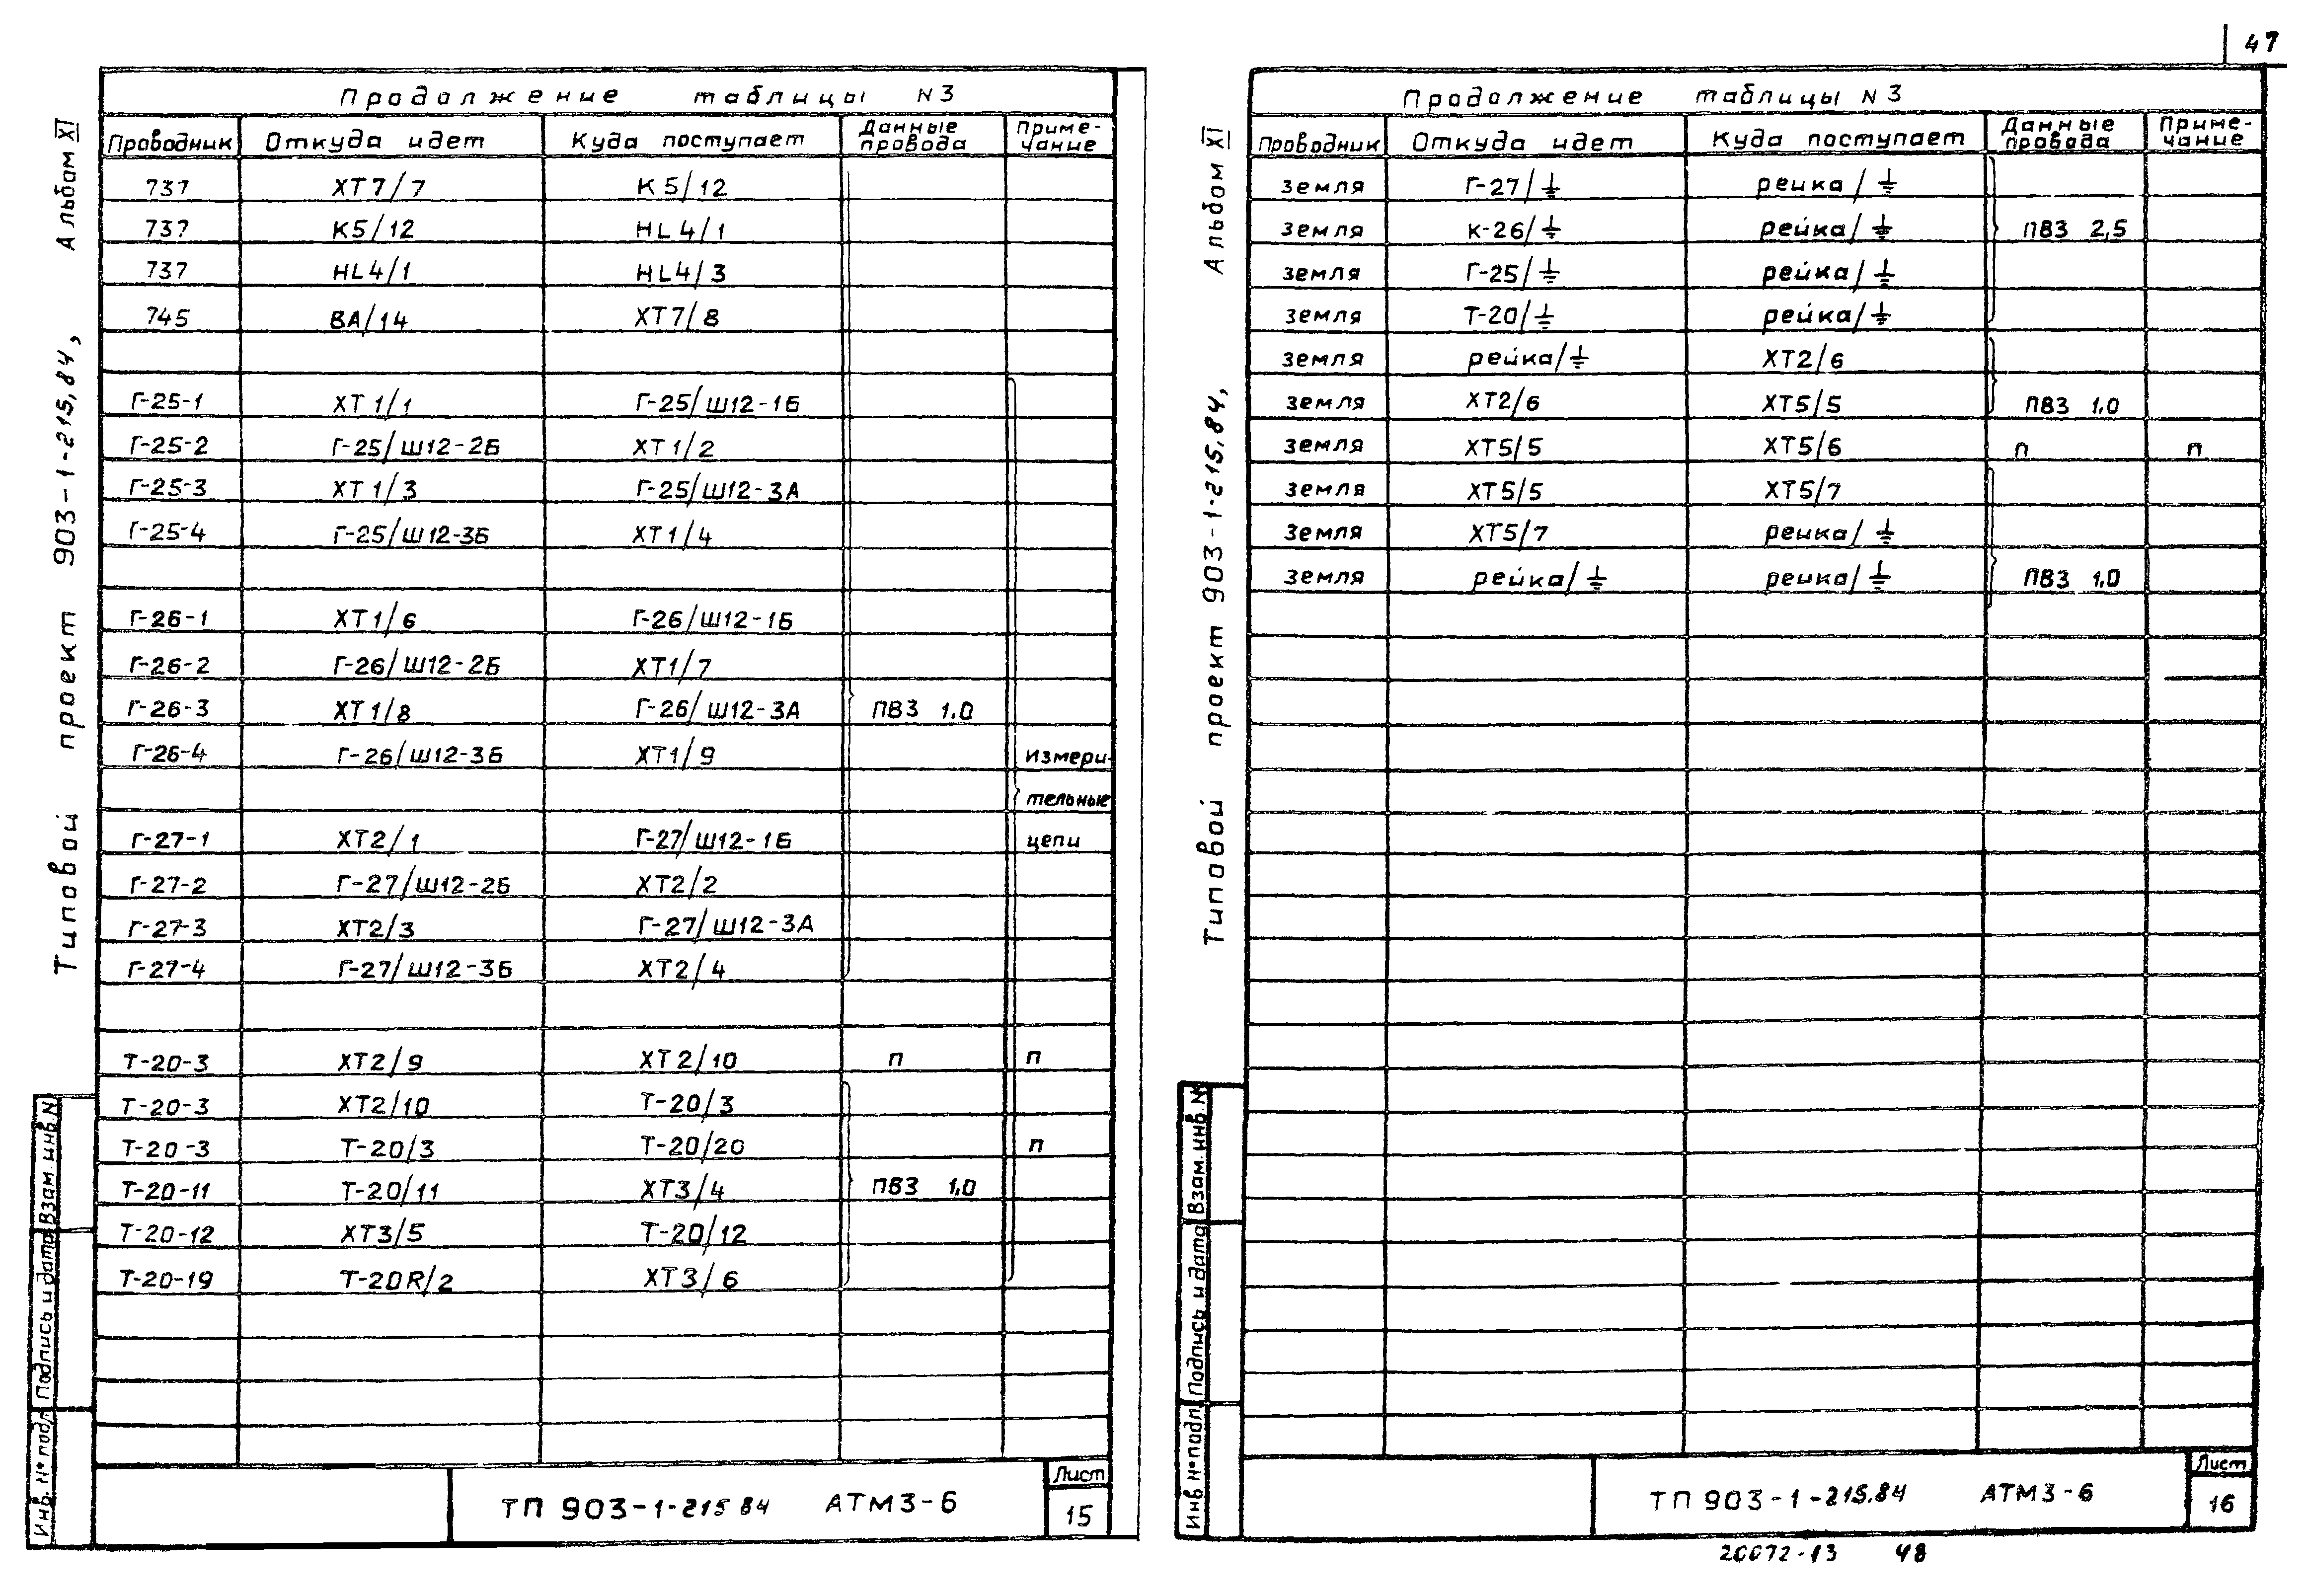 47
Альбом XI
Типовой проект 903-1-215.84,
Продолжение таблицы N3
Проводник Откуда идет Куда поступает Данные провода Примечание
737 ХТ7/7 К5/12
737 К5/12 HL4/1
737 HL4/1 HL4/3
745 ВА/14 ХТ7/8
Г-25-1 ХТ1/1 Г-25/Ш12-1Б
Г-25-2 Г-25/Ш12-2Б ХТ1/2
Г-25-3 ХТ1/3 Г-25/Ш12-3А
Г-25-4 Г-25/Ш12-3Б ХТ1/4
Г-26-1 ХТ1/6 Г-26/Ш12-1Б
Г-26-2 Г-26/Ш12-2Б ХТ1/7
Г-26-3 ХТ1/8 Г-26/Ш12-3А ПВ3 1.0
Г-26-4 Г-26/Ш12-3Б ХТ1/9 Измери-
тельные
Г-27-1 ХТ2/1 Г-27/Ш12-1Б цепи
Г-27-2 Г-27/Ш12-2Б ХТ2/2
Г-27-3 ХТ2/3 Г-27/Ш12-3А
Г-27-4 Г-27/Ш12-3Б ХТ2/4
Т-20-3 ХТ2/9 ХТ2/10 п п
Т-20-3 ХТ2/10 Т-20/3
Т-20-3 Т-20/3 Т-20/20 п
Т-20-11 Т-20/11 ХТ3/4 ПВ3 1,0
Т-20-12 ХТ3/5 Т-20/12
Т-20-19 Т-20R/2 ХТ3/6
Инв. № подл Подпись и дата Взам. инв. N
ТП 903-1-215 84 АТМ3-6
Лист
15
Альбом XI
Типовой проект 903-1-215.84,
Продолжение таблицы N3
Проводник Откуда идет Куда поступает Данные провода Примечание
земля Г-27/⏚ рейка/⏚
земля К-26/⏚ рейка/⏚ ПВ3 2,5
земля Г-25/⏚ рейка/⏚
земля Т-20/⏚ рейка/⏚
земля рейка/⏚ ХТ2/6
земля ХТ2/6 ХТ5/5 ПВ3 1.0
земля ХТ5/5 ХТ5/6 п п
земля ХТ5/5 ХТ5/7
земля ХТ5/7 рейка/⏚
земля рейка/⏚ рейка/⏚ ПВ3 1.0
Инв № подл Подпись и дата Взам. инв. N
ТП 903-1-215.84 АТМ3-6
Лист
16
20072-13 48